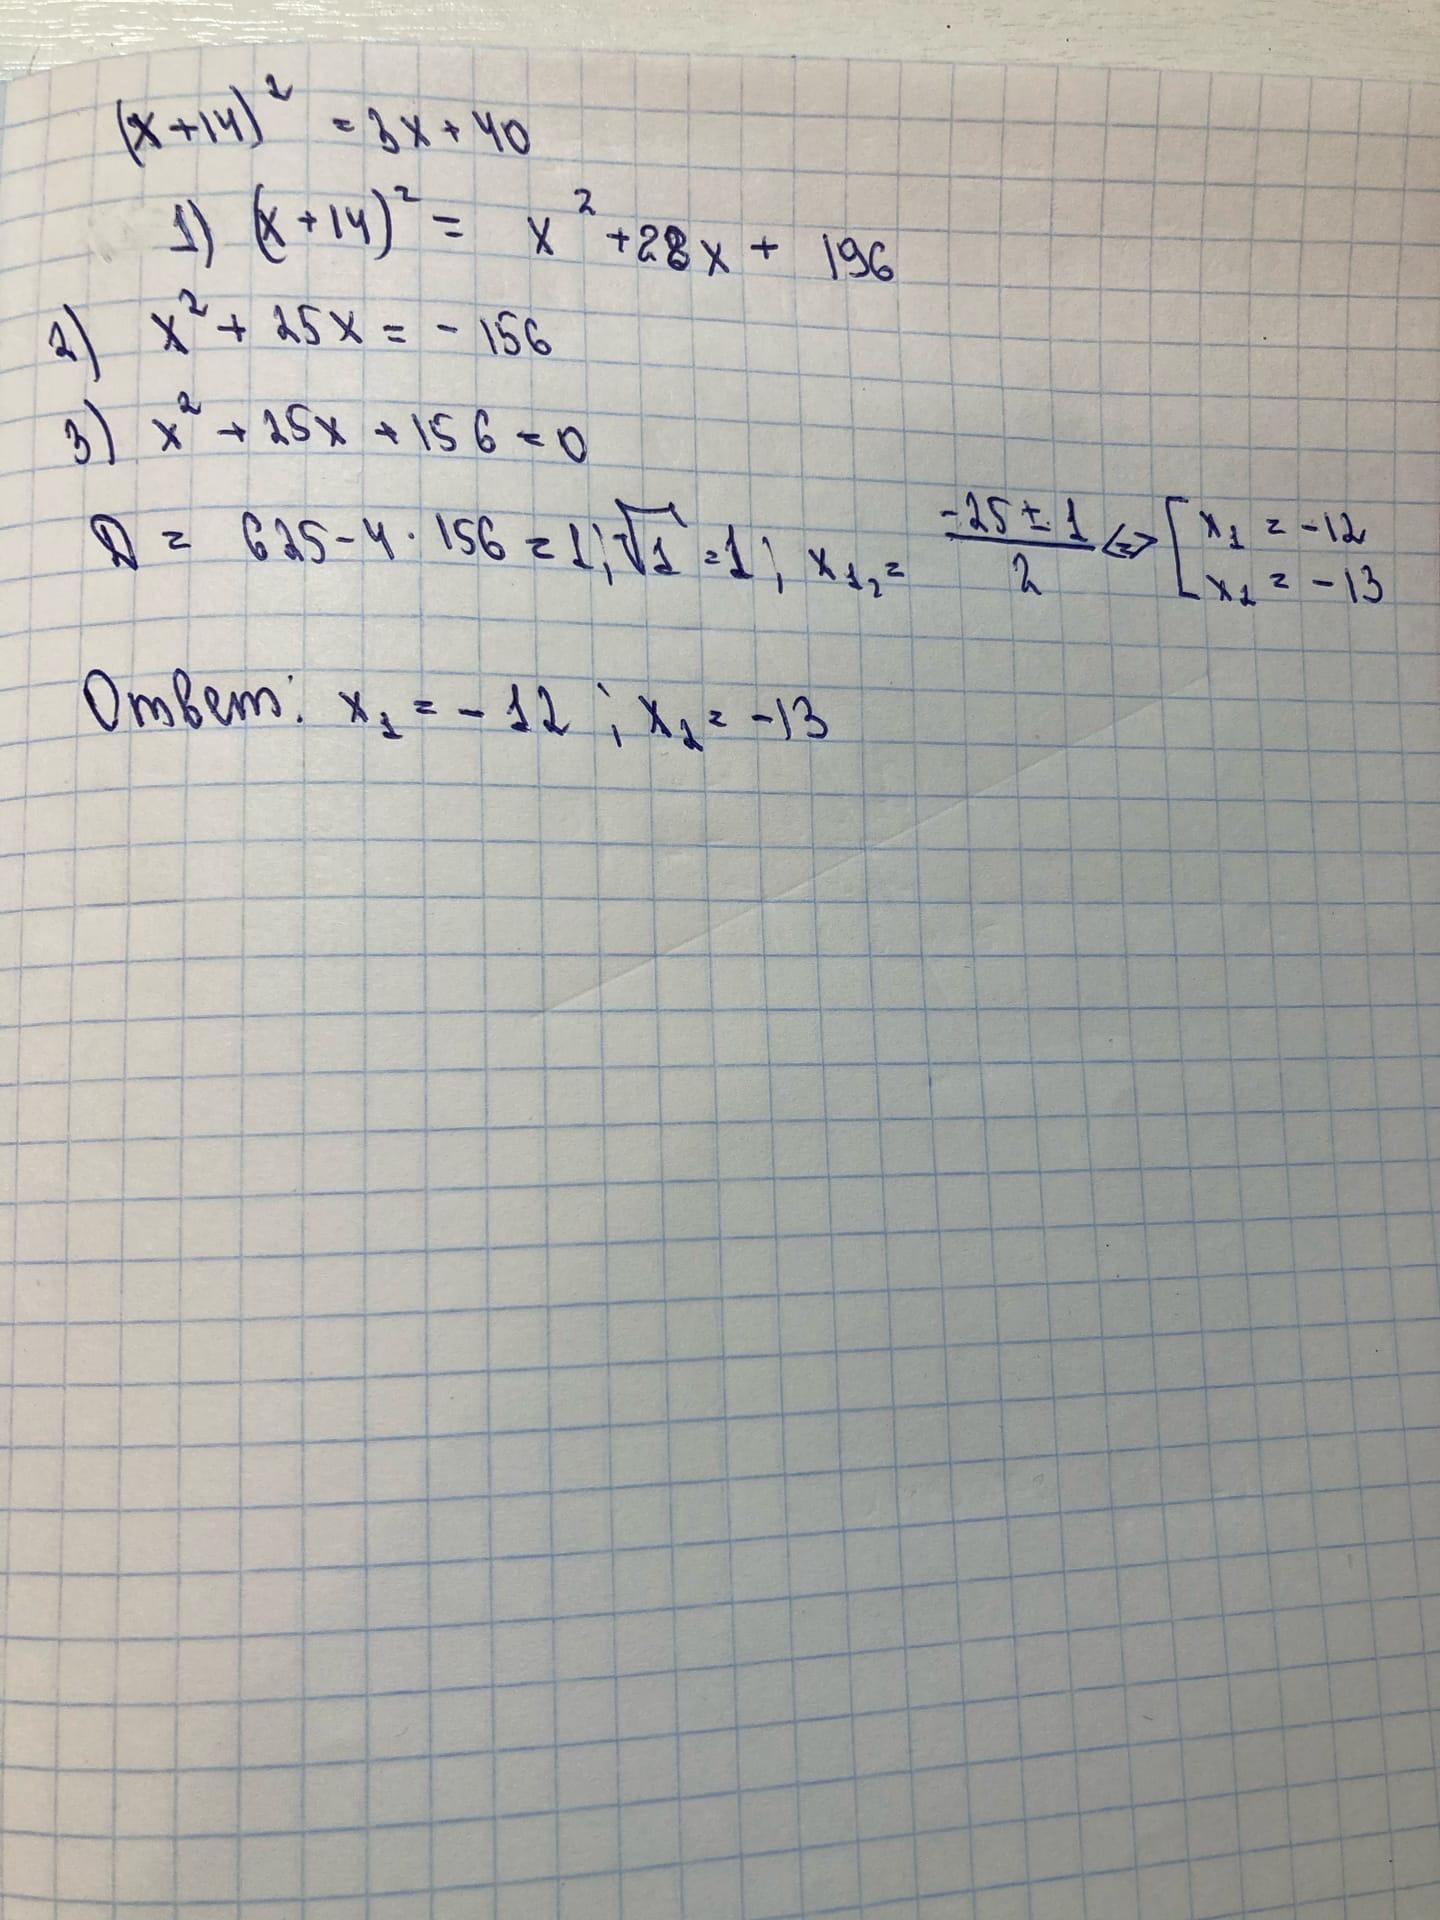 (x+14)² = 3x+40
1) (x+14)² = x² +28x + 196
2) x² + 25x = - 156
3) x² + 25x + 156 = 0
D = 625-4·156 = 1; √1 = 1; x₁,₂ = (-25 ± 1)/2 <=> [ x₁ = -12
x₂ = -13
Ответ: x₁ = - 12 ; x₂ = -13